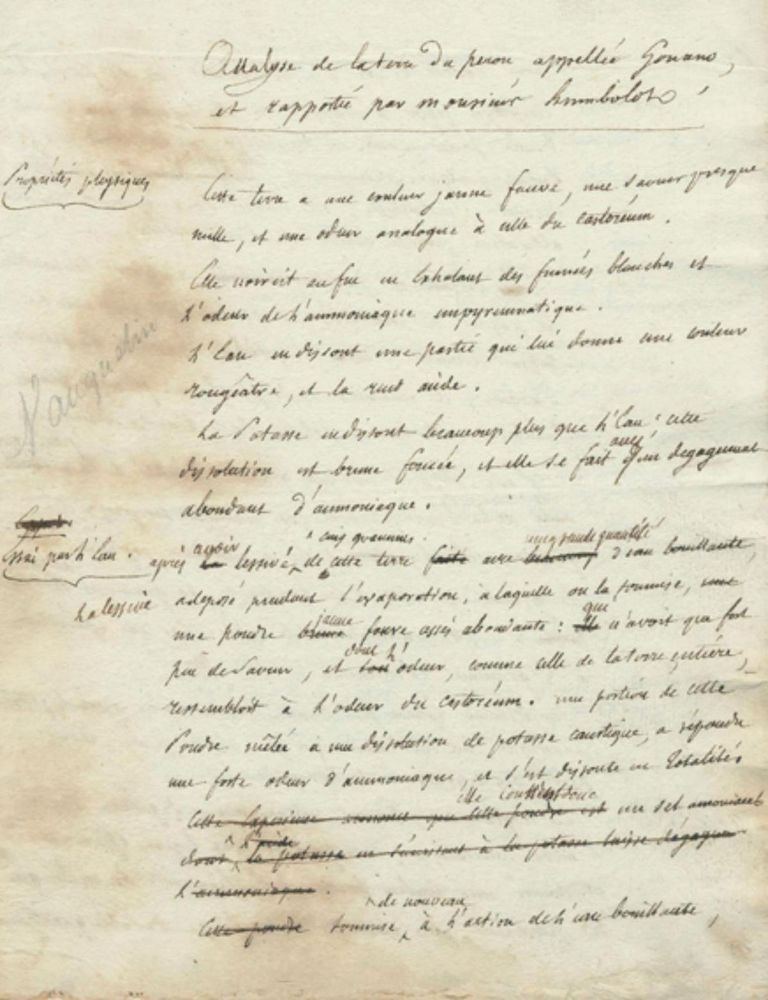 Analyse de la terre du perou appellée Gouano,
et rapportée par monsieur humbolot
Propriétés physiques
Cette terre a une couleur jaune fauve, une saveur presque
nulle, et une odeur analogue à celle du castoréum.
Elle noircit au feu en exhalant des fumées blanches et
l'odeur de l'ammoniaque empyreumatique.
l'eau en dissout une partie qui lui donne une couleur
rougeâtre, et la rend acide.
Vauquelin
La Potasse en dissout beaucoup plus que l'eau : cette
dissolution est brune foncée, et elle se fait avec un degagement
abondant d'ammoniaque.
Essai par l'eau.
après avoir lessivé cinq grammes de cette terre avec une grande quantité d'eau bouillante,
La lessive a deposé pendant l'evaporation, à laquelle on la soumise,
une poudre jaune fauve assés abondante : que n'avoit que fort
peu de saveur, et dont l'odeur, comme celle de la terre entière,
ressembloit à l'odeur du castoréum. une portion de cette
Poudre mêlée à une dissolution de potasse caustique, a répandu
une forte odeur d'ammoniaque, et s'est dissoute en totalités
Cette experience annonce que cette poudre est elle est donc un sel amoniacal
dont l'acide la potasse en s'unissant à la potasse laisse dégager
l'ammoniaque.
Cette poudre soumise de nouveau à l'action de l'eau bouillante,